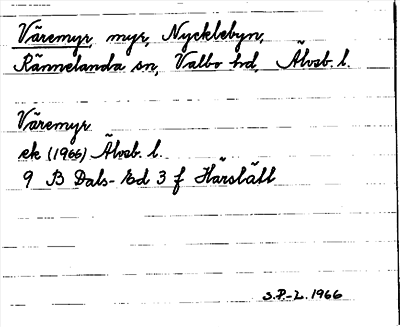 Väremyr, myr, Nycklebyn,
Rännelanda sn, Valbo hd, Älvsb. l.
Väremyr
ek (1966) Älvsb. l.
9 B Dals-Ed 3 f Härslätt
S.P.-L. 1966